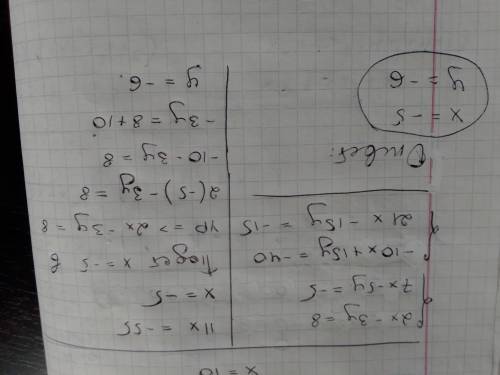 x = 10
2x - 3y = 8
7x - 5y = -5
-10x + 15y = -40
21x - 15y = -15
Ответ:
x = -5
y = -6
11x = -55
x = -5
x = -5 в
ур => 2x - 3y = 8
2(-5) - 3y = 8
-10 - 3y = 8
-3y = 8 + 10
y = -6.